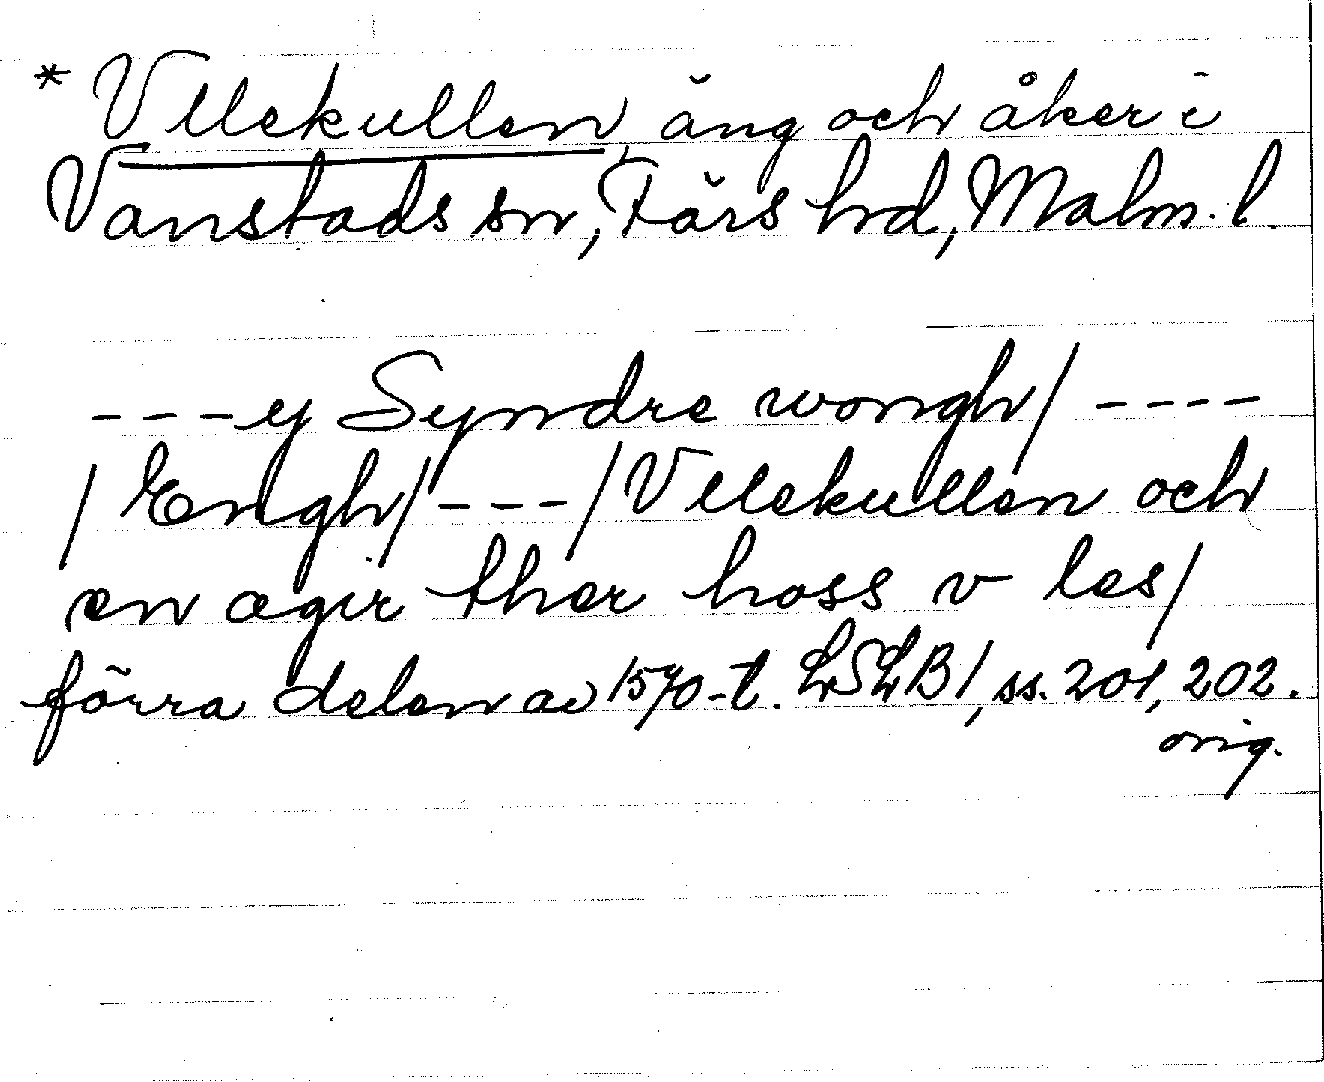 * Vllekullen, äng och åker i
Vanstads sn, Färs hd, Malm. l.
---y Syndre wongh/ ----
/Engh/---/Vllekullen och
en agir ther hoss v les/
förra delen av 1570-t. LSLB 1, ss. 201, 202.
orig.